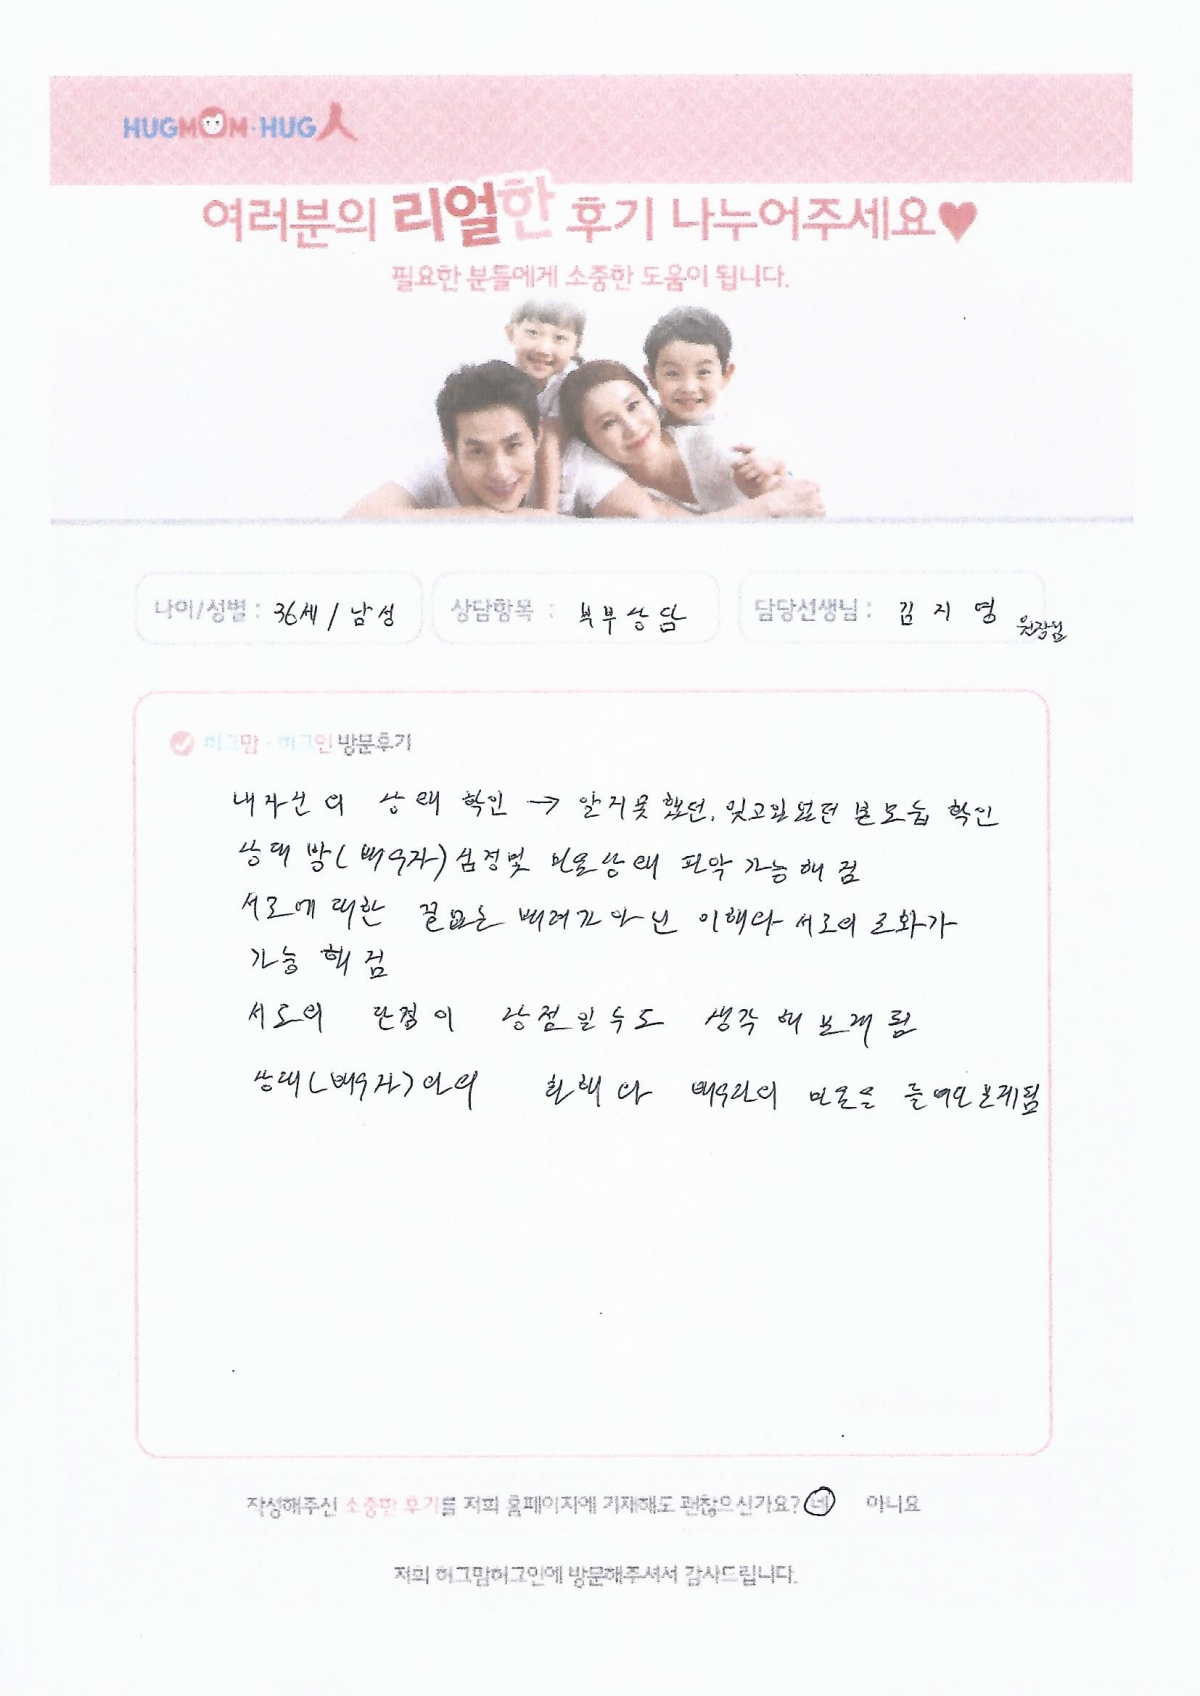 HUGMOM·HUG人
여러분의 리얼한 후기 나누어주세요♥
필요한 분들에게 소중한 도움이 됩니다.
나이/성별 : 36세 / 남성
상담항목 : 부부상담
담당선생님 : 김지영 원장님
허그맘·허그인 방문후기
내자신의 상태 확인 → 알지못했던, 잊고있었던 본모습 확인
상대방(배우자) 심정및 마음상태 파악 가능해 점
서로에 대한 필요는 배려가 아닌 이해와 서로의 로화가
가능해 점
서로의 단점이 장점일수도 생각해보게 됨
상대(배우자)와의 화해와 배우자의 마음을 들여다보게됨
작성해주신 소중한 후기를 저희 홈페이지에 기재해도 괜찮으신가요? 네 아니요
저희 허그맘허그인에 방문해주셔서 감사드립니다.